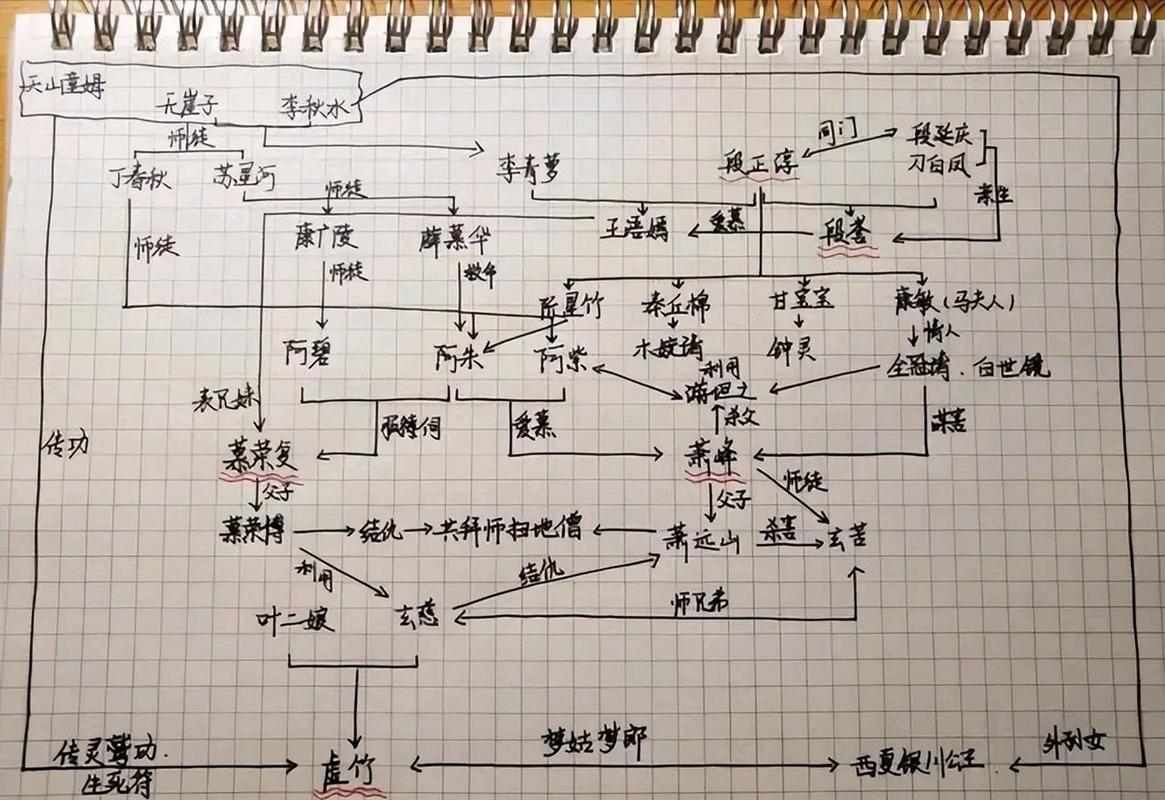 天山童姆
无崖子
李秋水
师徒
同门
段延庆
刁白凤
丁春秋
苏星河
李青萝
段正淳
师徒
亲生
王语嫣
爱慕
段誉
康广陵
薛慕华
师徒
师徒
救命
阮星竹
秦红棉
甘宝宝
康敏(马夫人)
情人
阿碧
阿朱
阿紫
木婉清
钟灵
利用
全冠清.白世镜
游坦之
表兄妹
服侍伺
爱慕
杀父
谋害
传功
慕容复
萧峰
师徒
父子
父子
慕容博
结仇
共拜师扫地僧
萧远山
杀害
玄苦
利用
结仇
师兄弟
叶二娘
玄慈
传灵鹫功.
生死符
虚竹
梦姑梦郎
西夏银川公主
外孙女